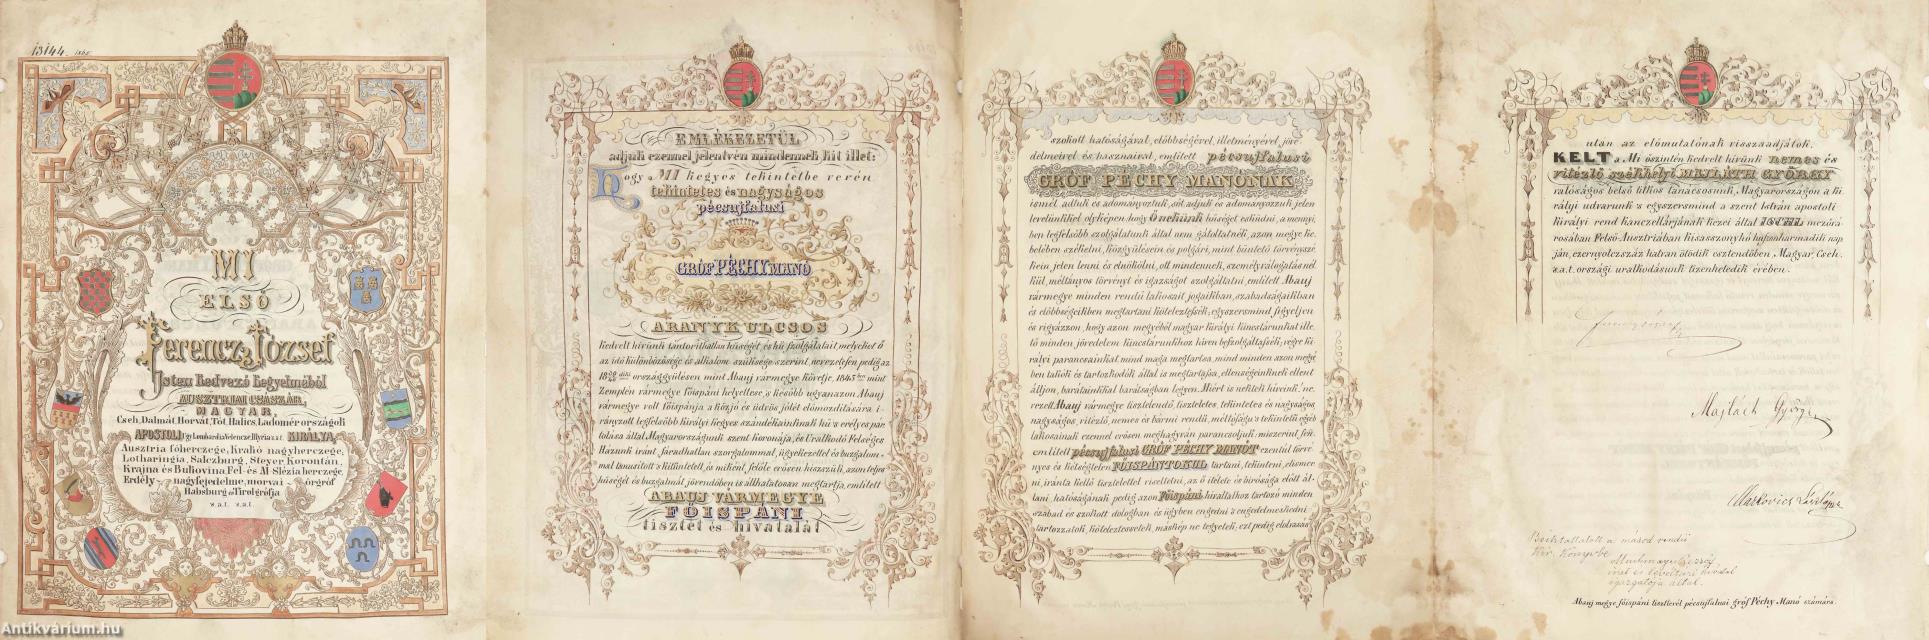 13144 1865
MI
ELSŐ
Ferencz József
Isten kedvező kegyelméből
AUSZTRIAI CSÁSZÁR,
MAGYAR,
Cseh, Dalmát, Horvát, Tót, Halics, Ladomér országok
APOSTOLI KIRÁLYA,
Ausztria főherczege, Krakó nagyherczege,
Lotharingia, Salczburg, Steyer, Korontán,
Krajna és Bukovina, Fel- és Al-Slézia herczege,
Erdély nagyfejedelme, morvai őrgróf
Habsburg s Tirol grófja
s.a.t. s.a.t.
EMLÉKEZETÜL
adjuk ezennel jelentvén mindennek kit illet:
Hogy MI kegyes tekintetbe vevén
tekintetes és nagyságos
pécsujfalusi
GRÓF PÉCHY MANÓ
ARANYKULCSOS
kedvelt hívünk tántoríthatlan hűségét és hű szolgálatait, melyeket ő
az idő különbözősége és alkalom szülksége szerint, nevezetesen pedig az
országgyűlésen mint Abauj vármegye követje, 1845 ben mint
Zemplén vármegye főispáni helyettese 's később ugyanazon Abauj
vármegye volt főispánja a közjó és üdvös jólét előmozdítására i-
rányzott legfelsőbb Királyi kegyes szándékainknak hű 's erélyes pár-
tolása által, Magyarországunk szent koronája, és Uralkodó Felséges
Házunk iránt, fáradhatlan szorgalommal, ügyekezettel és buzgalom-
mal tanusított s kitüntetett, és miként, felőle erősen hiszszük, azon teljes
hűségét és buzgalmát jövendőben is állhatatosan megtartja, említett
ABAUJ VÁRMEGYE
FŐISPÁNI
tisztét és hivatalát
szokott hatóságával, előbbségével, illetményével, jöve-
delmeivel és hasznaival, említett pécsujfalusi
GRÓF PÉCHY MANÓNAK
ismét adtuk és adományoztuk, sőt adjuk és adományozzuk jelen
levelünkkel olyképen, hogy Ő nekünk hűséget esküdni, a mennyi-
ben legfelsőbb szolgálatunk által nem gátoltatnék, azon megye ke-
belében székelni, közgyűlésein és polgári, mint büntető törvénysz-
kein jelen lenni és elnökölni, ott mindennek, személyválogatás nél-
kül, méltányos törvényt és igazságot szolgáltatni, említett Abauj
vármegye minden rendű lakosait jogaikban, szabadságaikban
és előbbségeikben megtartani köteleztessék; egyszersmind figyeljen
és rigyázzon, hogy azon megyéből magyar királyi kincstárunkat ille-
tő minden jövedelem kincstárunkhoz híven beszolgáltassék; végre ki-
rályi parancsainkat mind maga megtartsa, mind minden azon megyé-
ben lakók és tartozkodók által is megtartassa, ellenségeinknek ellent
álljon, barátainkkal barátságban legyen. Miért is nektek híveink! ne-
vezett Abauj vármegye tisztelendő, tiszteletes tekintetes és nagy-
ságos, vitézlő, nemes és bármi rendű, méltóságu 's tekintetű egyéb
lakosainak ezennel erősen meghagyván parancsoljuk: miszerint, fen-
említett pécsujfalusi GRÓF PÉCHY MANÓT ezentúl törvé-
nyes és kétségtelen FŐISPÁNTOKUL tartani, tekinteni, elismer-
ni, iránta kellő tisztelettel viseltetni, az ő ítélete és birósága előtt ál-
lani, hatóságának pedig azon Főispáni hivatalhoz tartozó minden
szabad és szokott dologban és ügyben engedni 's engedelmeskedni
tartozzatok, köteleztessetek, másként ne tegyetek, ezt pedig elolvasás
után az előmutatónak visszaadjátok.
KELT a Mi őszintén kedvelt hívünk nemes és
vitézlő székhelyi MAJLÁTH GYÖRGY
valóságos belső titkos tanácsosunk, Magyarországon a ki-
rályi udvarunk 's egyszersmind a szent István apostoli
királyi rend kanczellárjának kezei által ISCHL mezővá-
rosában Felső-Ausztriában kisasszonyhó huszonharmadik nap-
ján, ezernyolczszáz hatvan ötödik esztendőben, Magyar, Cseh,
s.a.t. országi uralkodásunk tizenhetedik évében.
Ferencz József
Majláth György
Markovics László
Beiktattatott a másod rendű
Kir. Könyvbe
által.
Abauj megye főispáni tisztlevél pécsujfalusi gróf Péchy Manó számára.
Antikvárium.hu